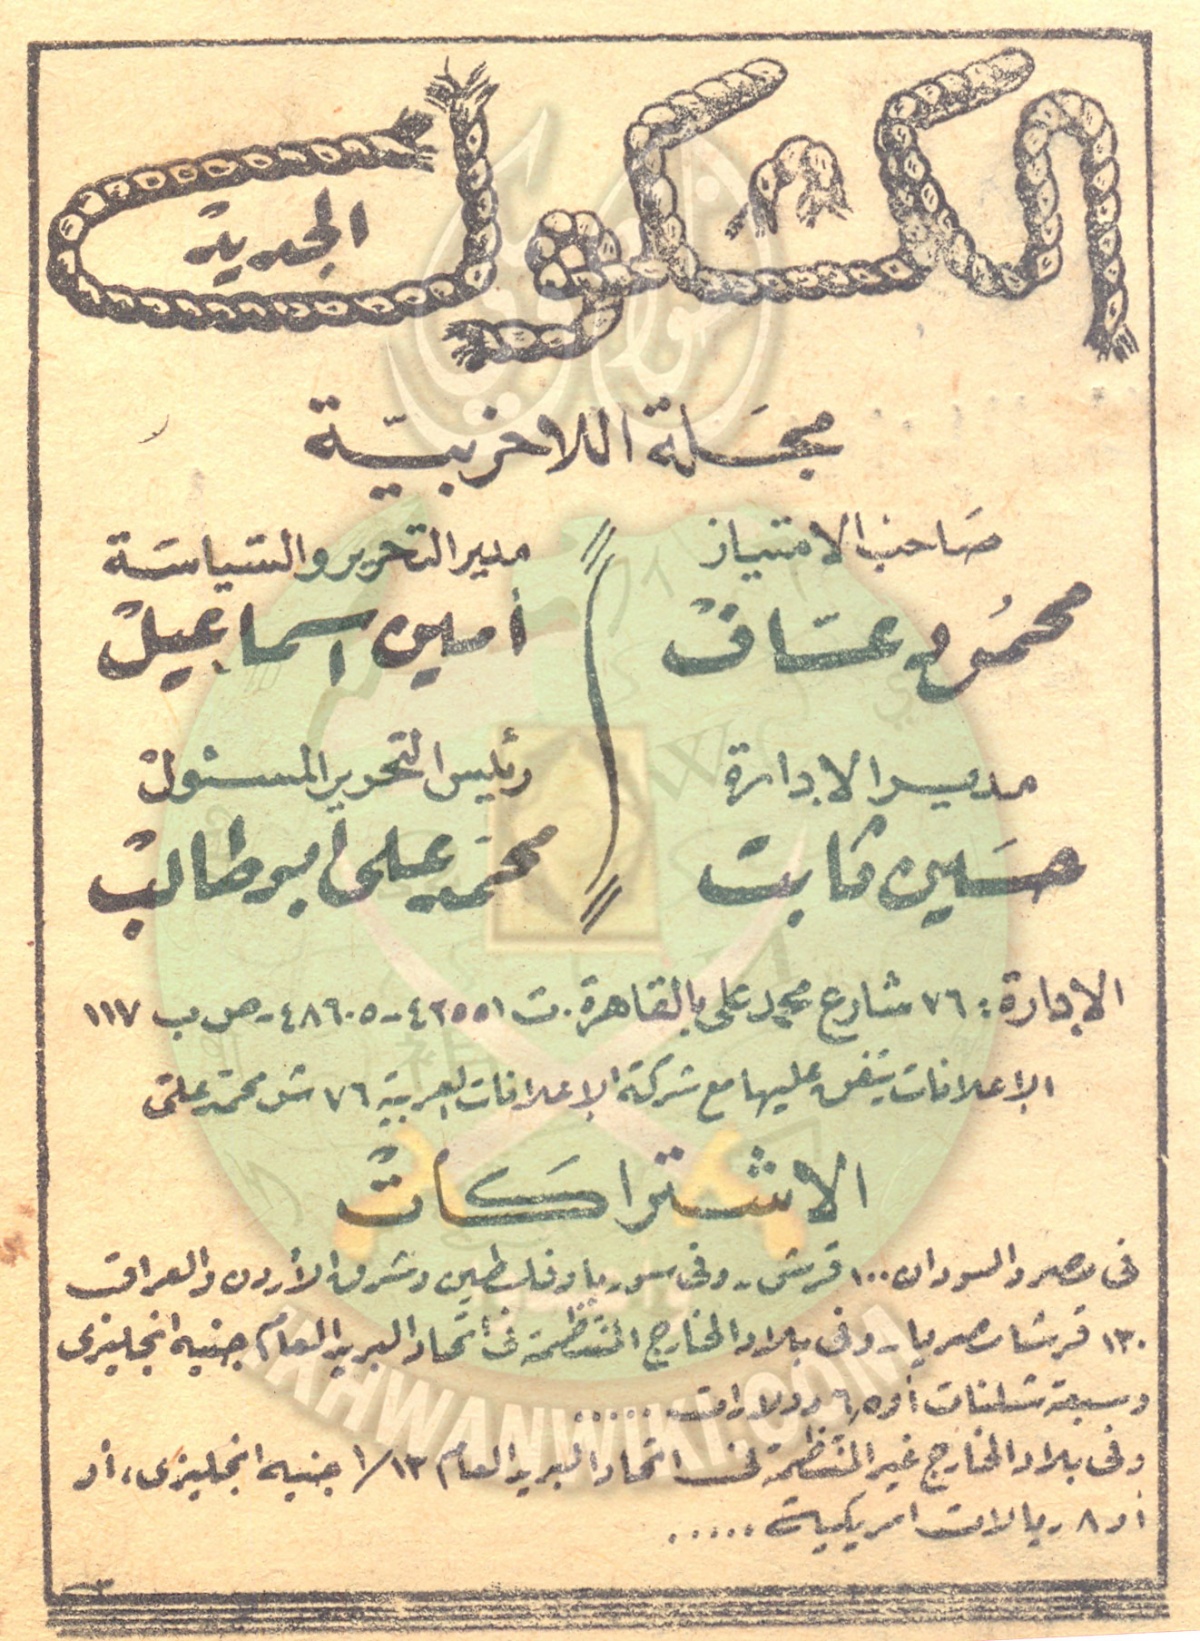 الكشكول
الجديد
مجلة اللاحزبية
صاحب الامتياز
محمود عساف
مدير التحرير والسياسة
أمين اسماعيل
مدير الادارة
حسين ثابت
رئيس التحرير المسئول
محمد على أبو طالب
الإدارة : ٧٦ شارع محمد على بالقاهرة . ت ٤٢٥٥١ - ٤٨٦٠٥ - ص ب ١١٧
الإعلانات يتفق عليها مع شركة الإعلانات العربية ٧٦ ش محمد على
الاشتراكات
فى مصر والسودان ١٠٠ قرش - وفى سوريا وفلسطين وشرق الأردن والعراق
١٣٠ قرشا مصريا - وفى بلاد الخارج المنتظمة فى اتحاد البريد العام جنيه انجليزى
وسبعة شلنات أو ٦,٥ دولارات .....
وفى بلاد الخارج غير المنتظمة فى اتحاد البريد العام ١/١٣ جنيه انجليزى ، أو
أو ٨ ريالات امريكية .....
٣
IKHWANWIKI.COM